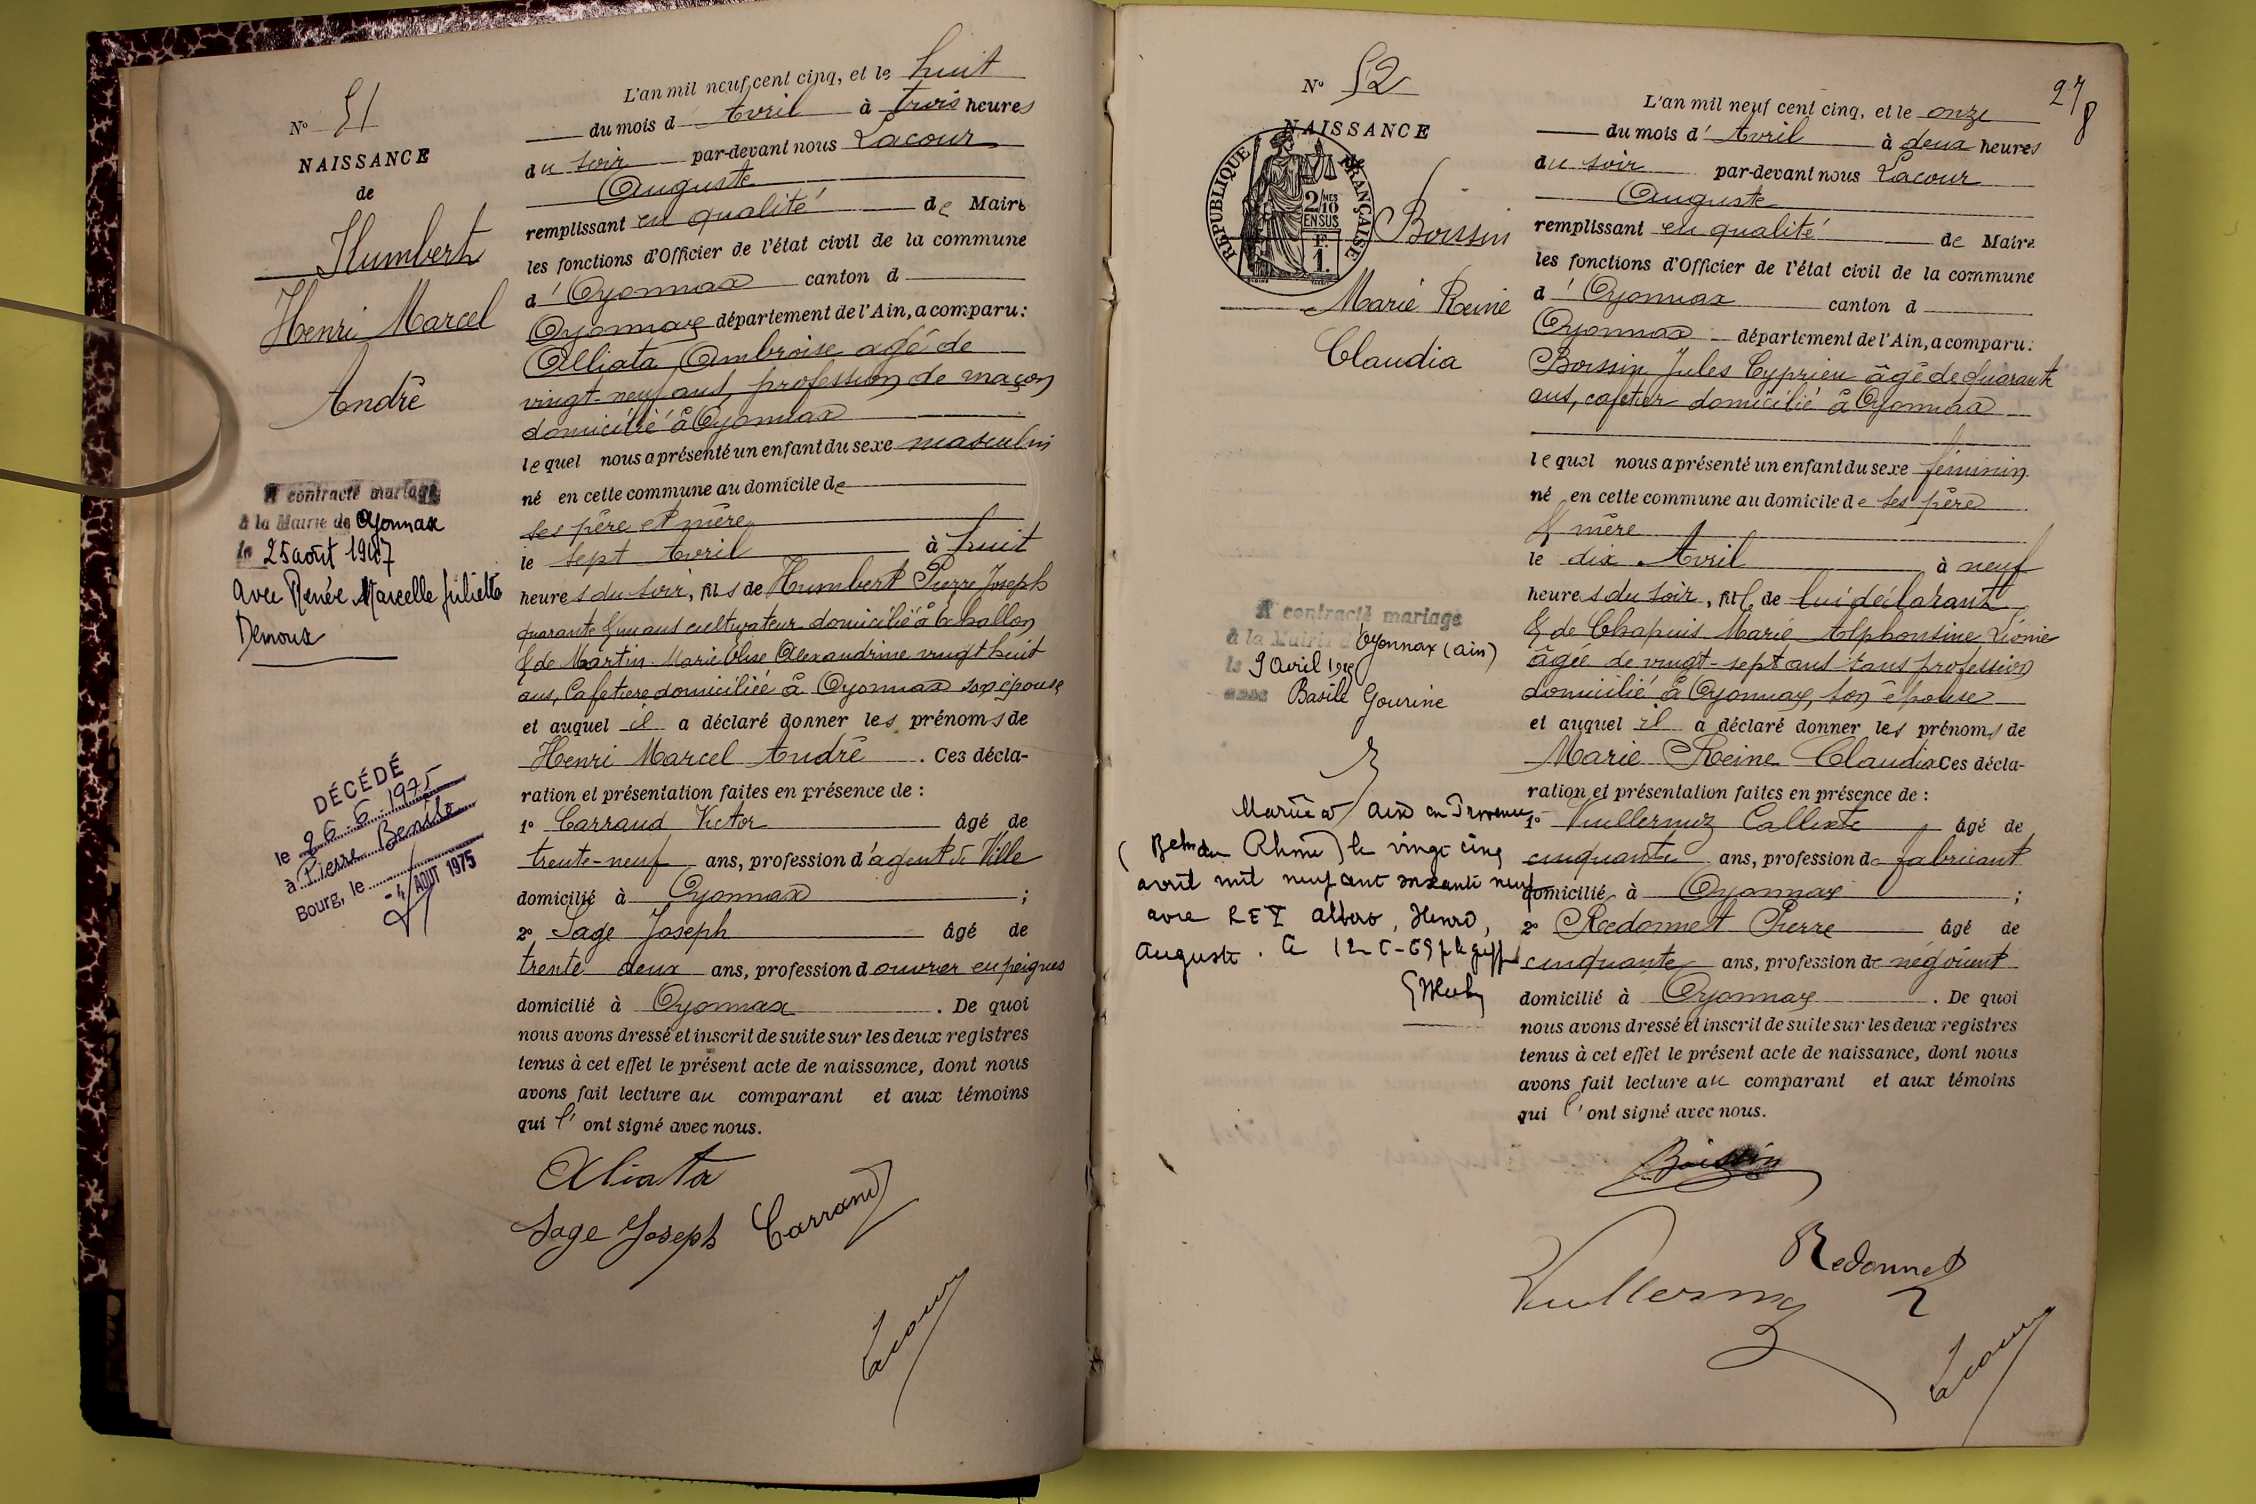 N° 51
NAISSANCE
de
Humbert
Henri Marcel
André
A contracté mariage
à la Mairie de Oyonnax
le 25 août 1947
avec Renée Marcelle Juliette
Demoux
DÉCÉDÉ
le 26.6.1975
à Pierre Benite
Bourg, le
-4 AOUT 1975
L'an mil neuf cent cinq, et le huit
du mois d Avril à trois heures
du soir par-devant nous Lacour
Auguste
remplissant en qualité de Maire
les fonctions d'Officier de l'état civil de la commune
d'Oyonnax canton d
Oyonnax département de l'Ain, a comparu:
Alliata Ambroise agé de
vingt-neuf ans, profession de maçon
domicilié à Oyonnax
lequel nous a présenté un enfant du sexe masculin
né en cette commune au domicile de
ses père et mère
le sept Avril à huit
heures du soir, fils de Humbert Pierre Joseph
quarante & un ans cultivateur domicilié à Echallon
& de Martin Marie Elise Alexandrine vingt huit
ans, Cafetiere domiciliée à Oyonnax son épouse
et auquel il a déclaré donner les prénoms de
Henri Marcel André. Ces décla-
ration et présentation faites en présence de :
1° Carraud Victor âgé de
trente-neuf ans, profession d'agent de Ville
domicilié à Oyonnax ;
2° Sage Joseph âgé de
trente deux ans, profession d ouvrier en peignes
domicilié à Oyonnax. De quoi
nous avons dressé et inscrit de suite sur les deux registres
tenus à cet effet le présent acte de naissance, dont nous
avons fait lecture au comparant et aux témoins
qui l'ont signé avec nous.
Aliata
Sage Joseph Carraud
Lacour
278
N° 52
NAISSANCE
RÉPUBLIQUE FRANÇAISE
2/10 MES
EN SUS
1 F.
Boissin
Marie Reine
Claudia
A contracté mariage
à la Mairie d Oyonnax (Ain)
le 9 Avril
avec Basile Gourine
Mariée à Aix en Provence
(Bches du Rhône) le vingt cinq
avril mil neuf cent soixante neuf
avec REY Albert, Henri,
Auguste.
L'an mil neuf cent cinq, et le onze
du mois d'Avril à deux heures
du soir par-devant nous Lacour
Auguste
remplissant en qualité de Maire
les fonctions d'Officier de l'état civil de la commune
d'Oyonnax canton d
Oyonnax département de l'Ain, a comparu:
Boissin Jules Cyprien âgé de quarante
ans, cafetier domicilié à Oyonnax
lequel nous a présenté un enfant du sexe féminin
né en cette commune au domicile de ses père
& mère
le dix Avril à neuf
heures du soir, fille de lui déclarant
& de Chapuis Marie Alphonsine Léonie
âgée de vingt-sept ans sans profession
domicilié à Oyonnax, son épouse
et auquel il a déclaré donner les prénoms de
Marie Reine Claudia Ces décla-
ration et présentation faites en présence de :
1° Vuillermoz Callixte âgé de
cinquante ans, profession de fabricant
domicilié à Oyonnax ;
2° Redonnet Pierre âgé de
cinquante ans, profession de négociant
domicilié à Oyonnax. De quoi
nous avons dressé et inscrit de suite sur les deux registres
tenus à cet effet le présent acte de naissance, dont nous
avons fait lecture au comparant et aux témoins
qui l'ont signé avec nous.
Boissin
Redonnet
Vuillermoz
Lacour